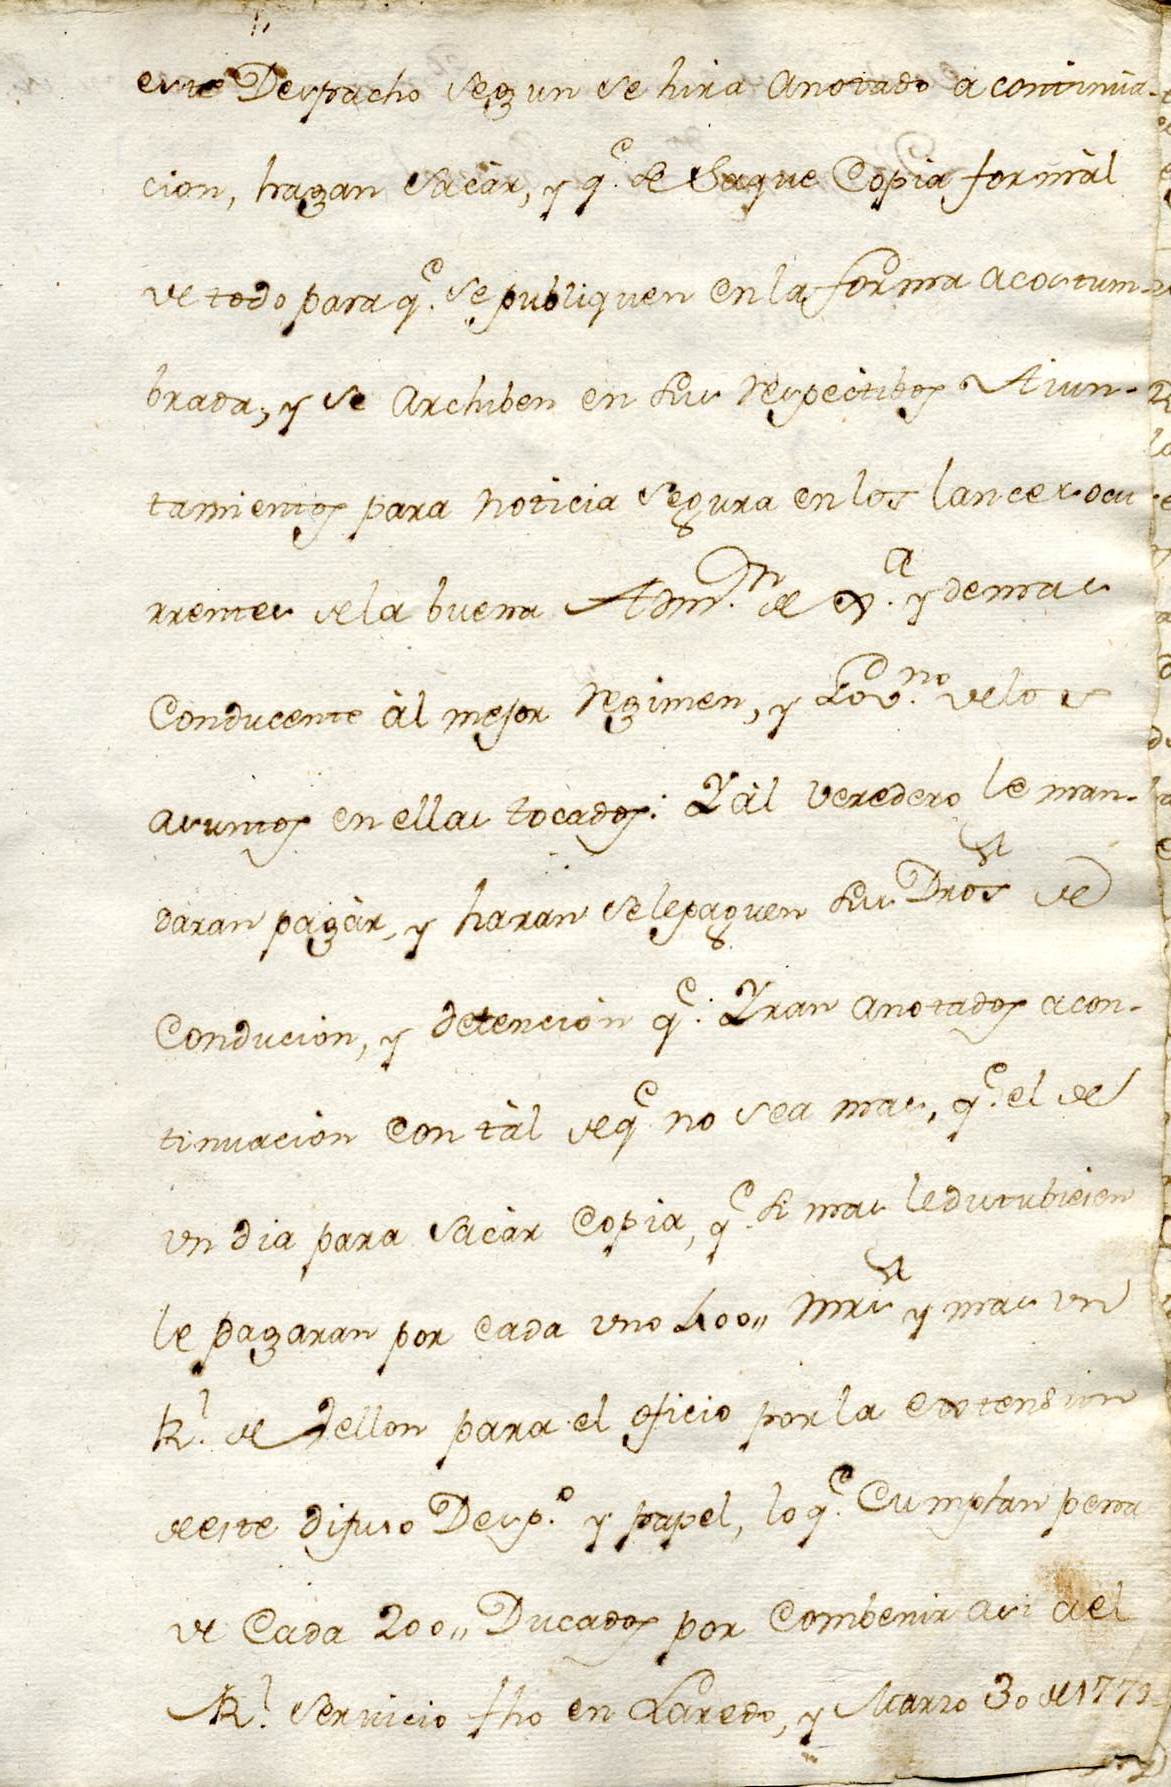 este Despacho segun se hira anotado a continua-
cion, hagan sacàr, y q.e se saque Copia formàl
de todo para q.e se publiquen en la forma acostum-
brada, y se Archiben en sus respectibos Aiun-
tamientos para noticia segura en los lances ocu
rrentes de la buena Adm.on de y demas
Conducente àl mejor regimen, y Gov.no de los
asumtos en ellas tocados: Y àl veredero le man-
daran pagàr, y haran se le paguen sus Dros de
Conducion, y detencion q.e Yran anotados a con-
tinuacion con tàl de q.e no sea mas, q.e el de
un dia para sacàr Copia, q.e si mas le detubiesen
le pagaran por cada uno 400,, mrs y mas un
R.l de vellon para el oficio por la extension
de este difuso Desp.o y papel, lo q.e Cumplan pena
de Cada 200,, Ducados por combenir asi a el
R.l servicio fho en Laredo, y Marzo 30 de 1779